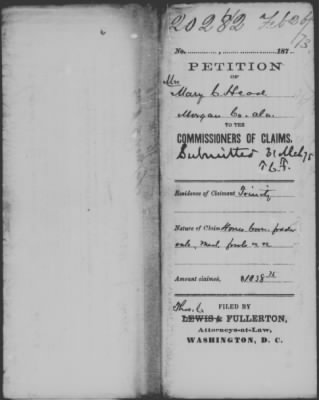 20282 Feb 26/73
No. ..............., ............................187
PETITION
OF
Mrs
Mary C. Head
Morgan Co. Ala.
TO THE
COMMISSIONERS OF CLAIMS.
Submitted 31 Mch 75
Residence of Claimant Trinity
Nature of Claim Horses Corn fodder
oats, meal, fowls
Amount claimed,
Thos. C.
FILED BY
LEWIS & FULLERTON,
Attorneys-at-Law,
WASHINGTON, D. C.